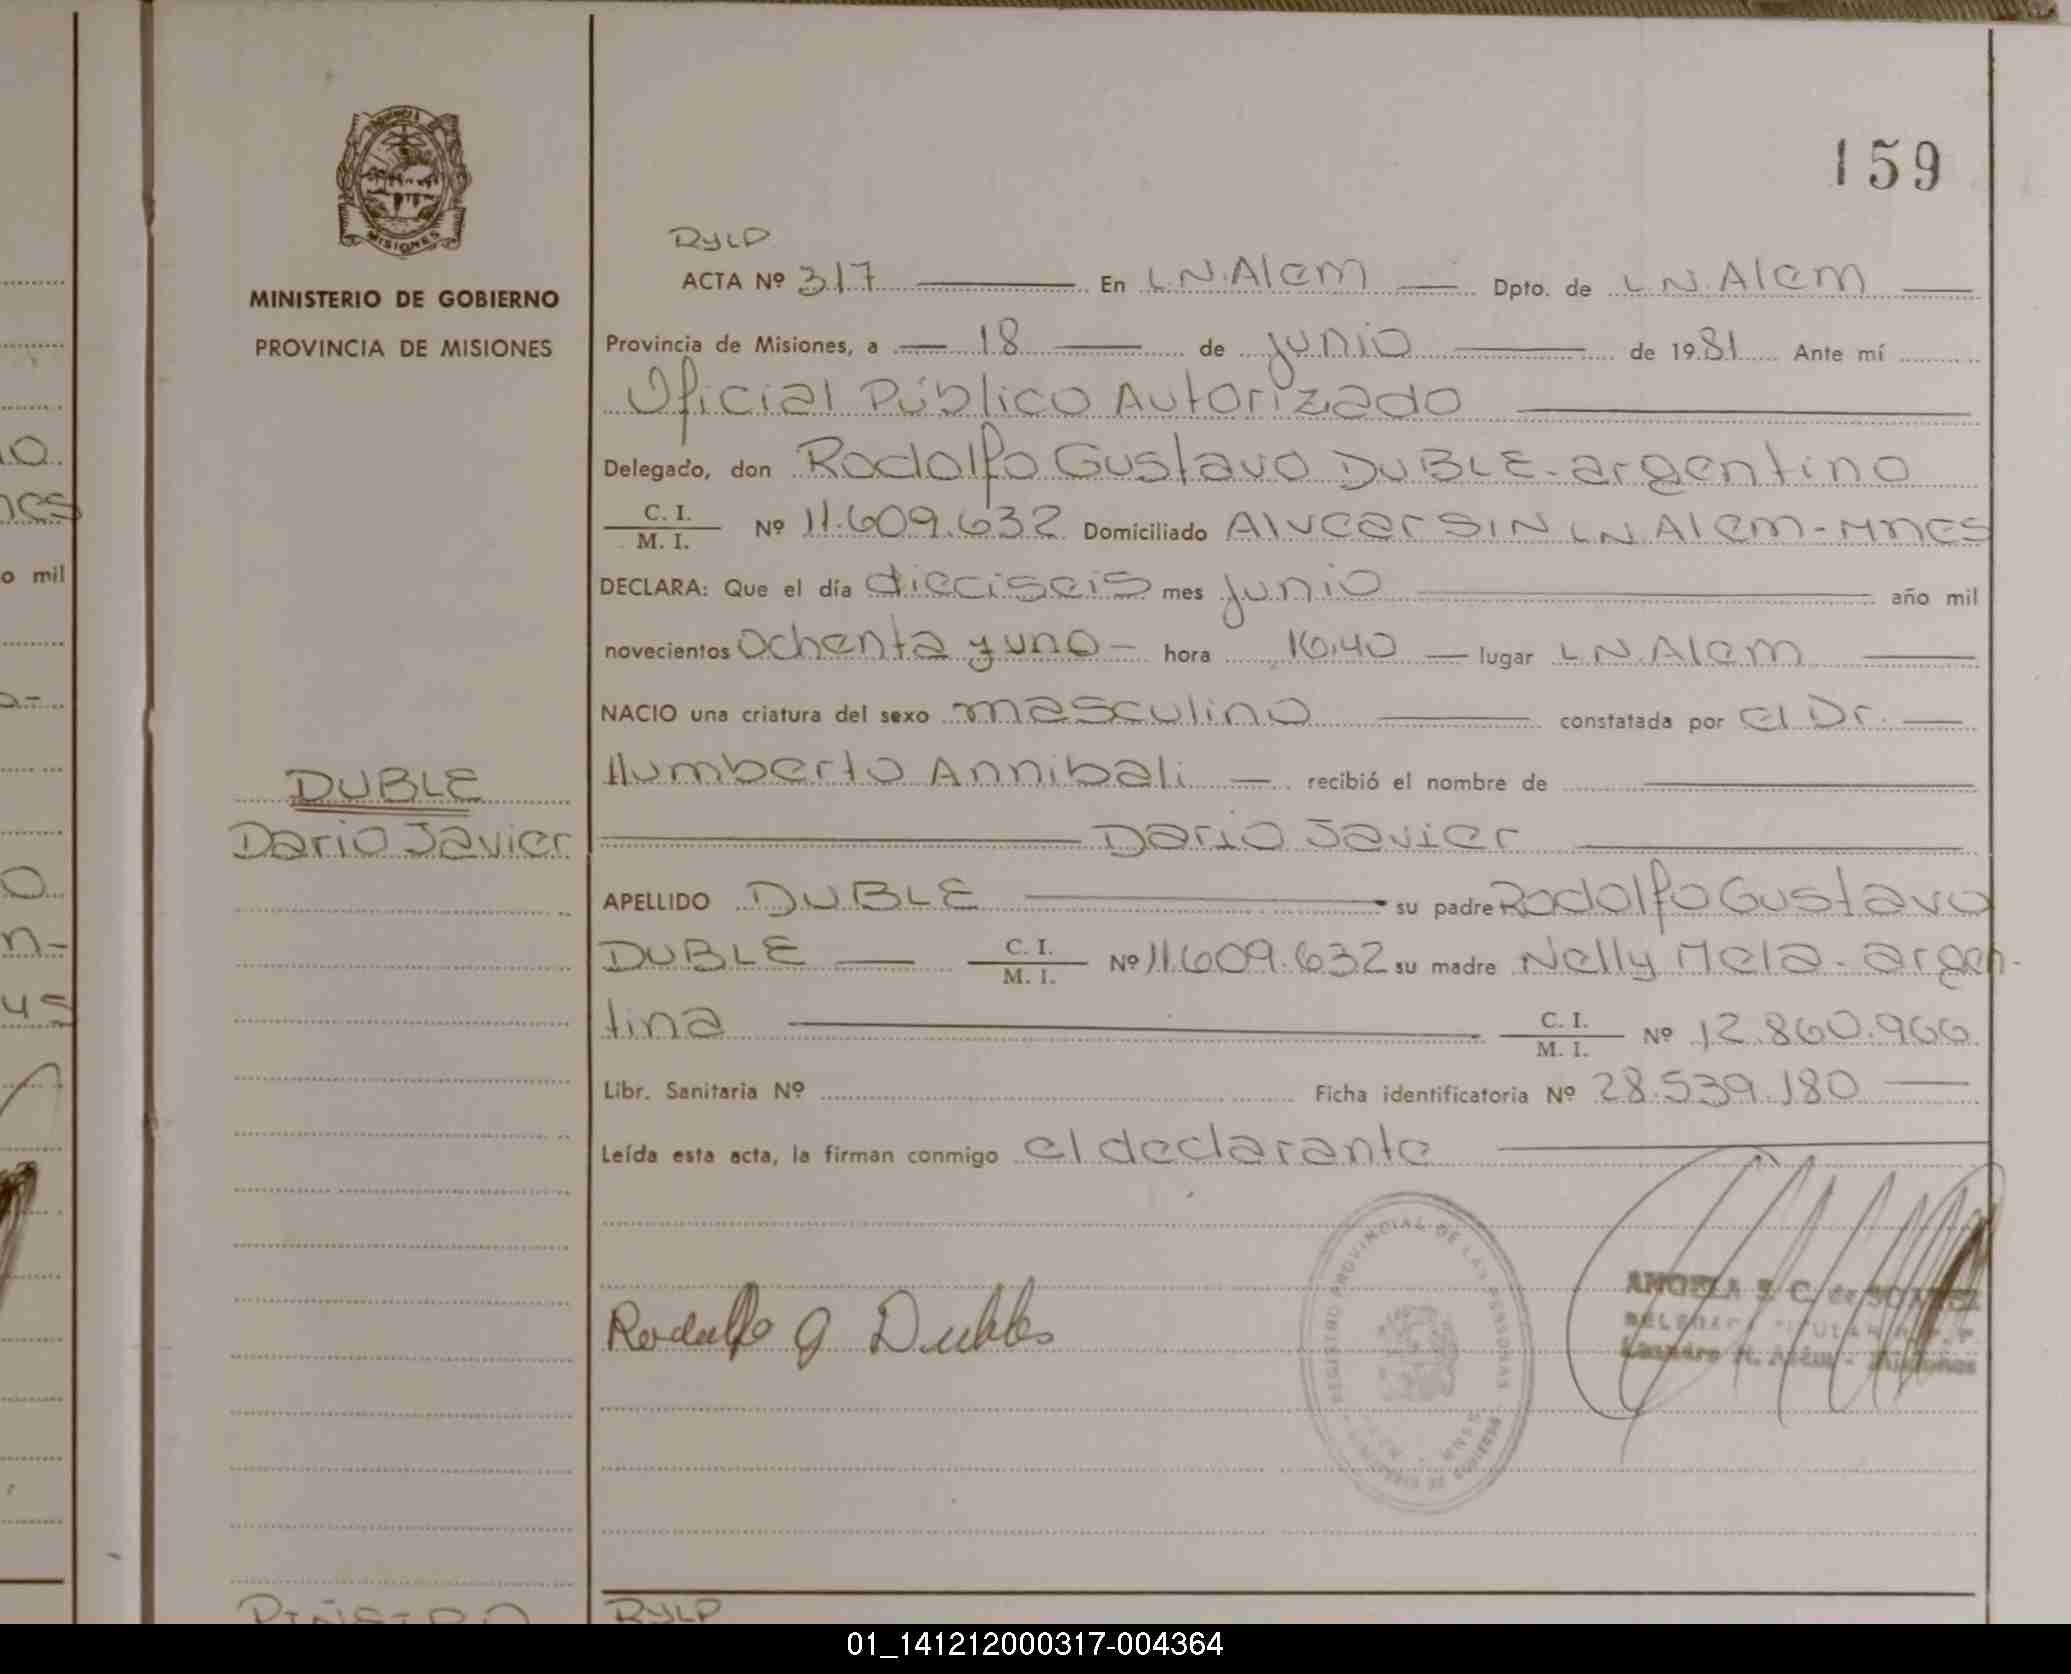 159
MISIONES
MINISTERIO DE GOBIERNO
PROVINCIA DE MISIONES
DUBLE
Dario Javier
RYLP
ACTA Nº 317 En L.N.Alem Dpto. de L.N.Alem
Provincia de Misiones, a 18 de junio de 1981 Ante mí
Oficial Público Autorizado
Delegado, don Rodolfo Gustavo DUBLE - argentino
C. I.
M. I. Nº 11.609.632 Domiciliado Alvear S/N L.N.Alem - Mnes
DECLARA: Que el día dieciseis mes junio año mil
novecientos ochenta y uno - hora 16,40 lugar L.N.Alem
NACIO una criatura del sexo masculino constatada por el Dr.
Humberto Annibali recibió el nombre de
Dario Javier
APELLIDO DUBLE su padre Rodolfo Gustavo
DUBLE C. I.
M. I. Nº 11.609.632 su madre Nelly Mela - argen-
tina C. I.
M. I. Nº 12.860.966
Libr. Sanitaria Nº Ficha identificatoria Nº 28.539.180
Leída esta acta, la firman conmigo el declarante
REGISTRO PROVINCIAL DE LAS PERSONAS
Rodolfo G Dubles
ANGELA S. C. de
RYLP
01_141212000317-004364